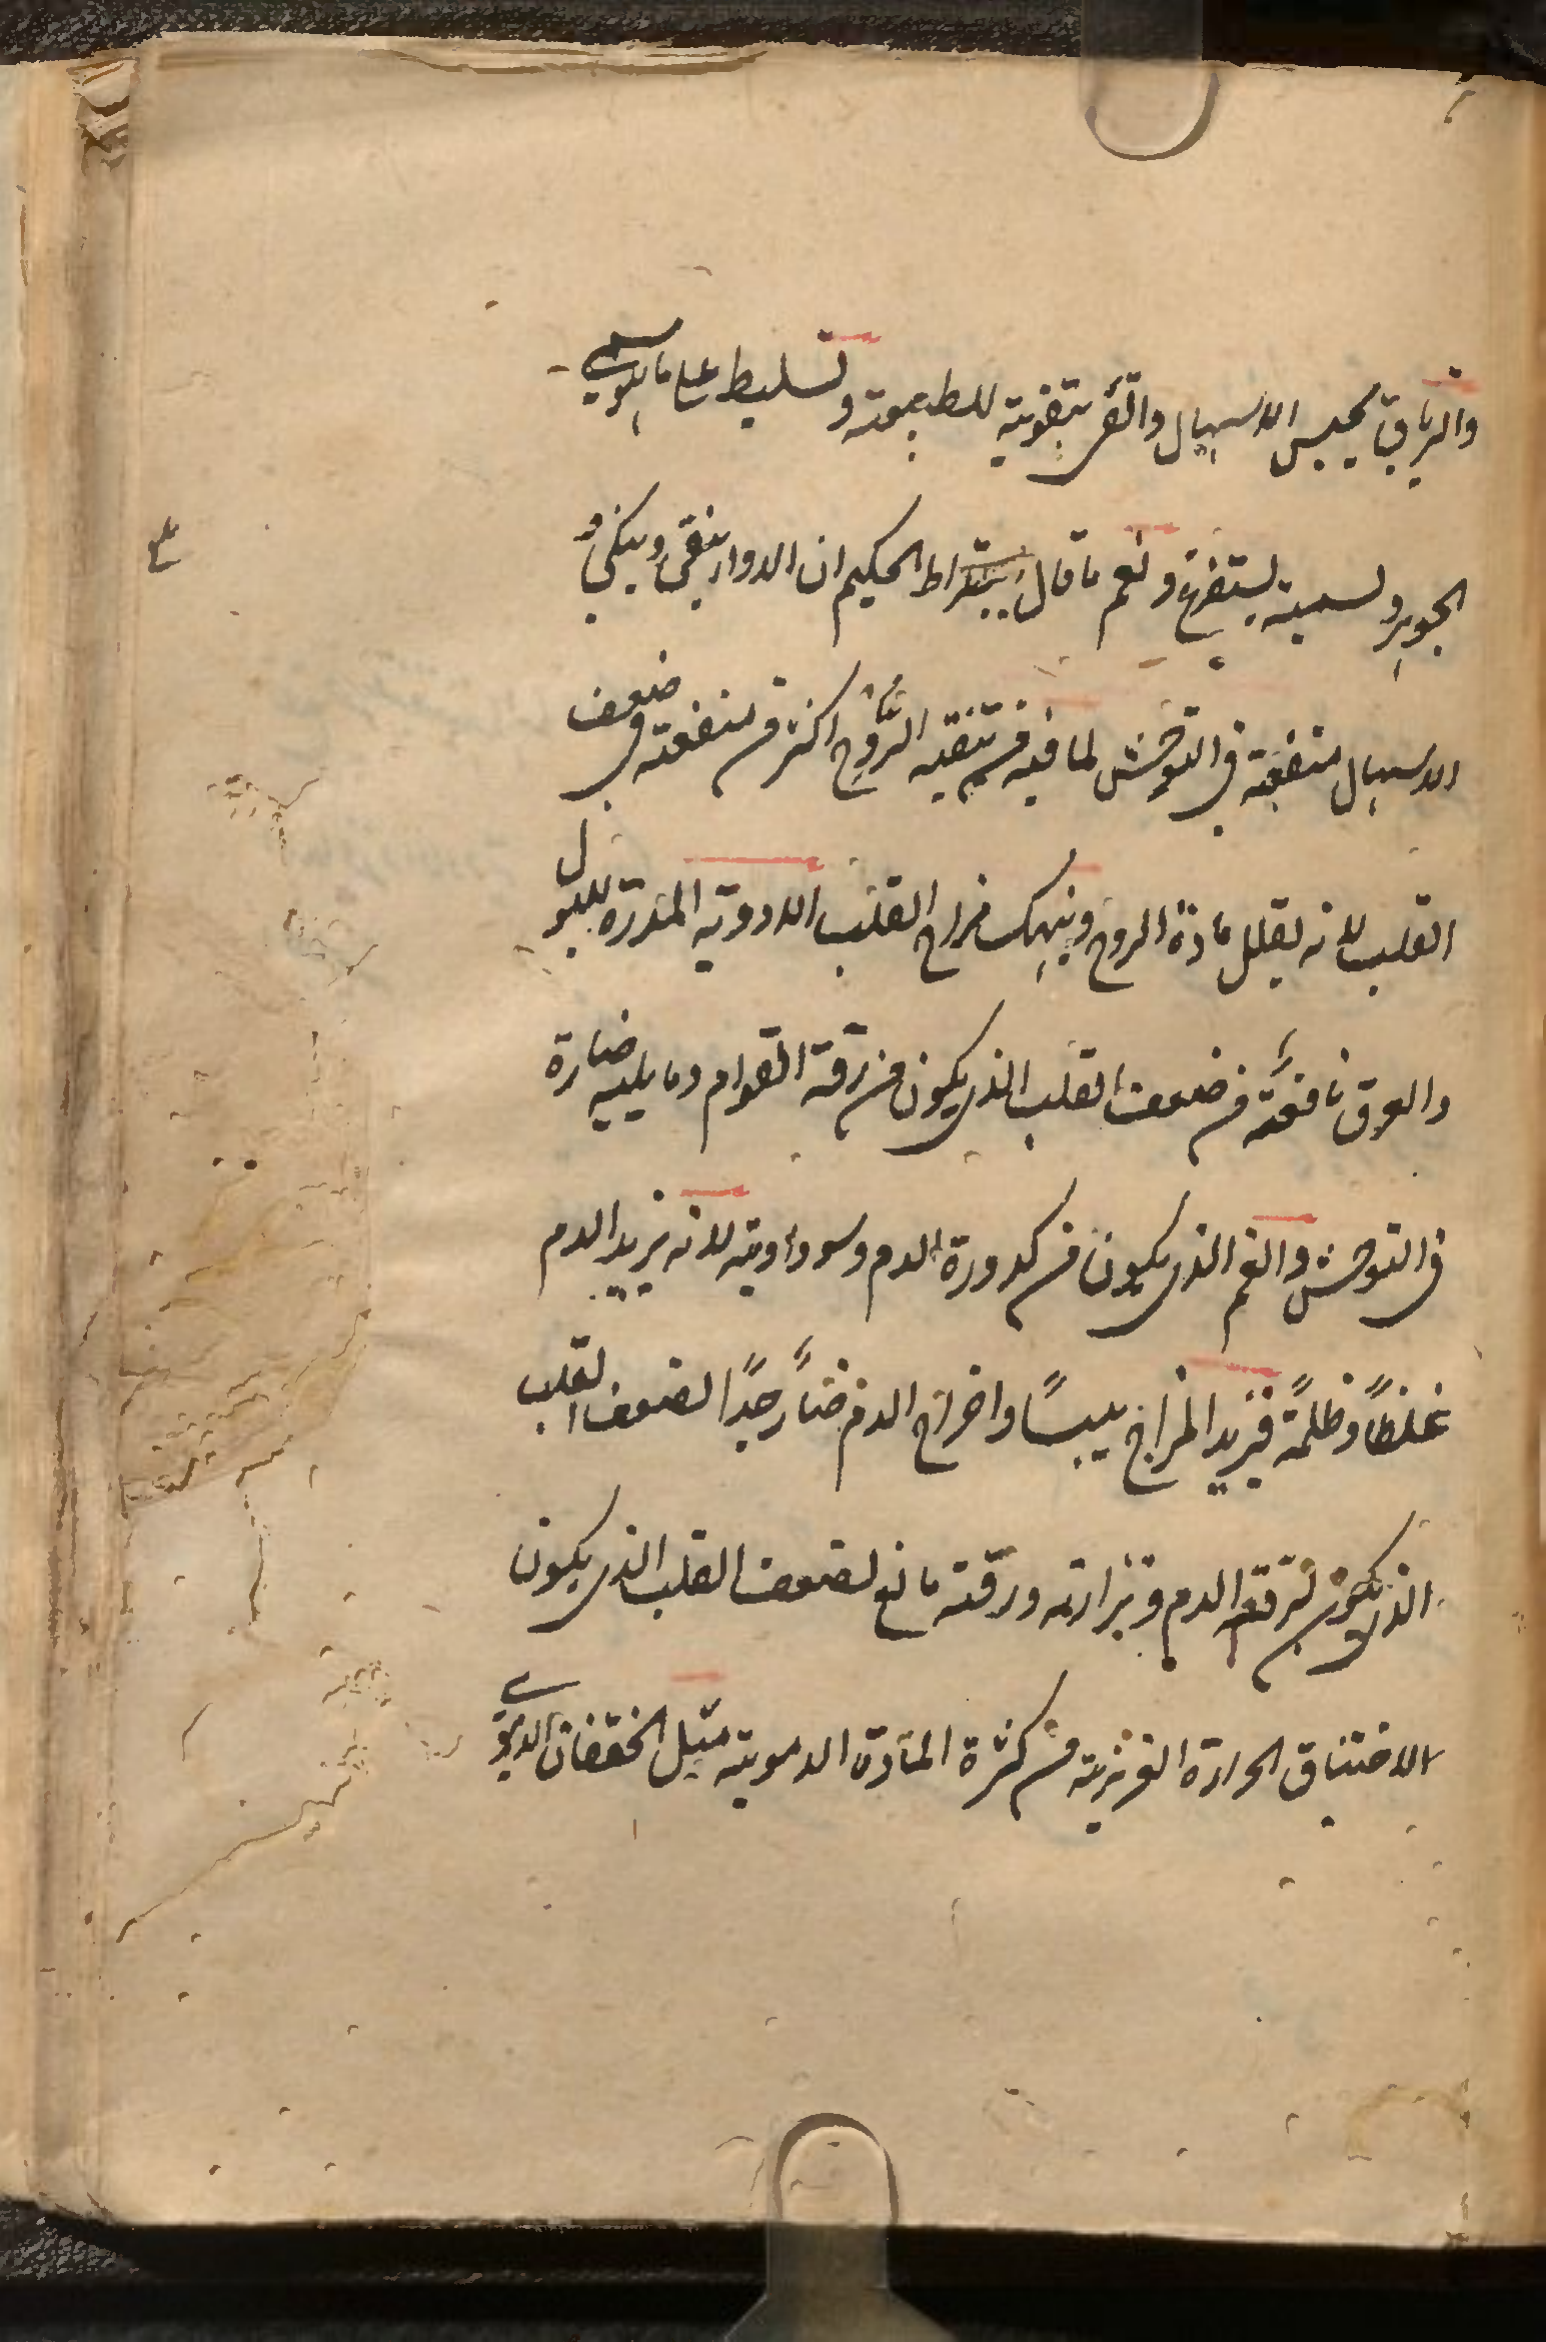 والترياق يحبس الاسهال والقئ بتقويته للطبيعة وتسليط على ما هو سمي
الجوهر ولسميته يستفرغ ونعم ما قال بقراط الحكيم ان الدواء ينقي وينكي و
الاسهال منفعته في التوحش لما فيه من تنقيه الروح اكثر من منفعته في ضعف
القلب لانه يقلل مادة الروح وينهك مزاج القلب الادوية المدرة للبول
والعرق نافعة من ضعف القلب الذي يكون من رقة القوام وما يليه ضارة
في التوحش والغم الذي يكون من كدورة الدم وسوداويته لانه يزيد الدم
غلظاً وظلمة فيزيد المزاج يبساً واخراج الدم ضارّ جداً لضعف القلب
الذي يكون لرقة الدم ونزارته ورقته مانع لضعف القلب الذي يكون
لاختناق الحرارة الغريزية من كثرة المادة الدموية مثل الخفقان الدموي